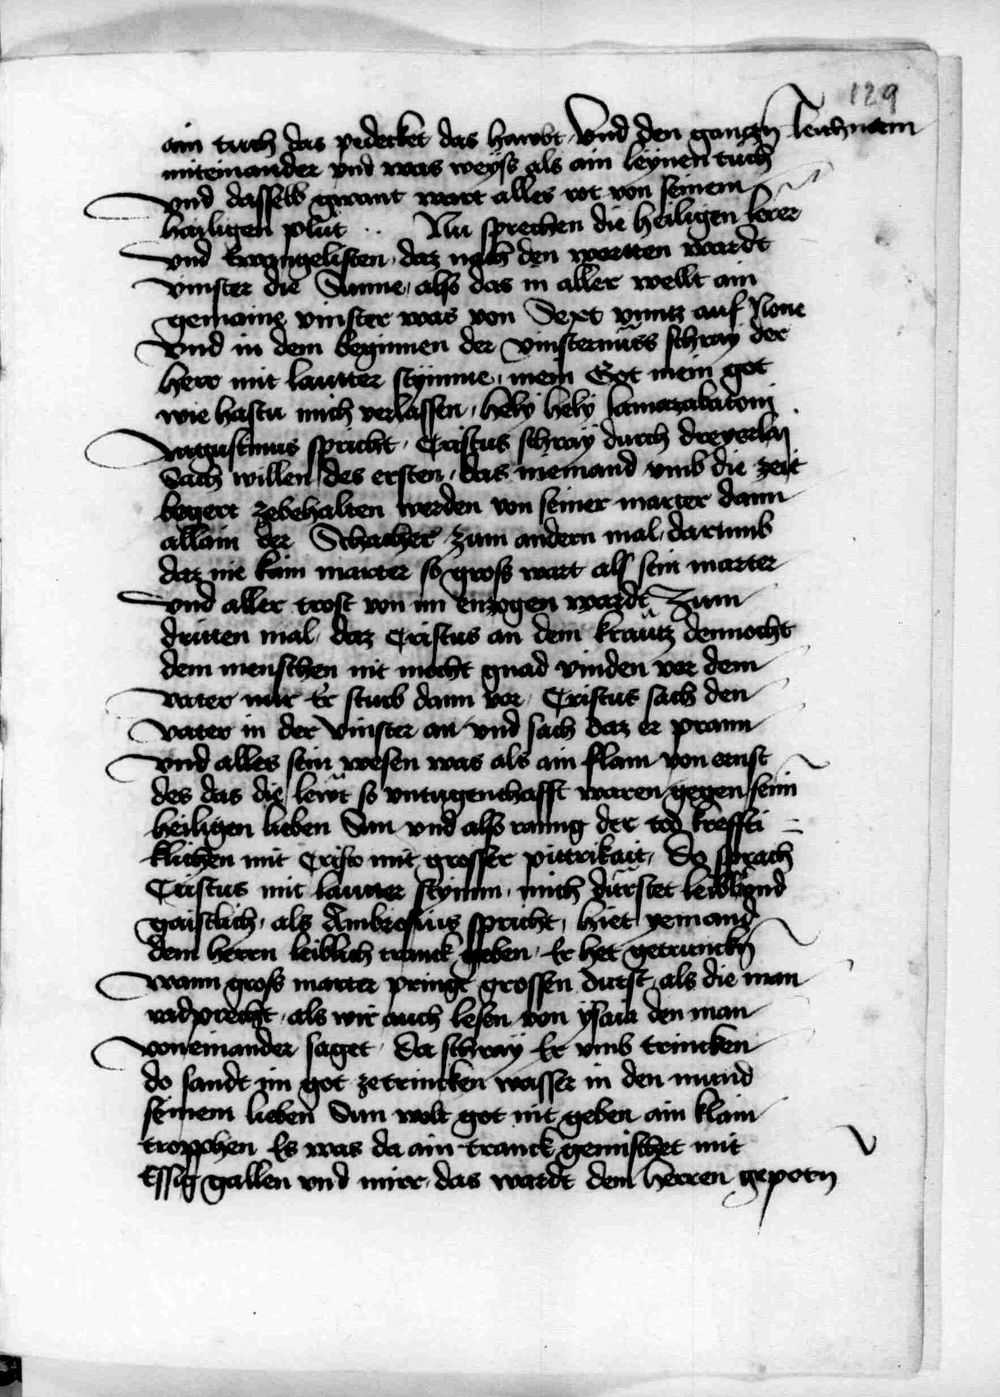 129
ain tuch das pedecket das hawbt Vnd den gangen leichnam
miteinander vnd was weyss als ain leynen tuch
Vnd dasselb gwant wart alles rot von seinem
hailigen plut .. Nu sprechen die heiligen lerer
vnd Ewangelisten daz nach den wortten wardt
vinster die Sunne also das in aller wellt ain
gemaine vinster was von Sext vnntz auf None
Vnd in dem beginnen der vinsternüss schray der
herr mit lautter stymme mein Got mein got
wie hastu mich verlassen hely hely lamazabatoni
Augustinus spricht Cristus schray durch dreyerlay
Sach willen des ersten das niemand vmb die zeit
begert zebehalten werden von seiner marter dann
allain der Schacher zum andern mal darumb
daz nie kain marter so gross wart als sein marter
vnd aller trost von im enzogen wardt Zum
dritten mal daz Cristus an dem kräutz dennocht
dem menschen nit mocht gnad vinden vor dem
vater nur Er sturb dann vor Cristus sach den
vater in der vinster an vnd sach daz er prann
vnd alles sein wesen was als ain flam von ernst
des das die lewt so vntugenthafft waren gegen seim
heiligen lieben Sun vnd also ranng der tod kreffti=
klichen mit Cristo mit grosser pittrikait Do sprach
Cristus mit lautter stymm mich dürstet leiblich vnd
gaistlich als Ambrosius spricht hiet yemand
dem herren leiblich tranck geben Er het getruncken
wann gross marter pringt grossen durst als die man
radprecht als wir auch lesen von ysaia den man
voneinander saget Da schray Er vmb trincken
do sandt im got zetrincken wasser in den mund
seinem lieben Sun wolt got nit geben ain klain
tropphen Es was da ain tranck gemischet mit
Essig gallen vnd mirr das wardt dem herren gepoten